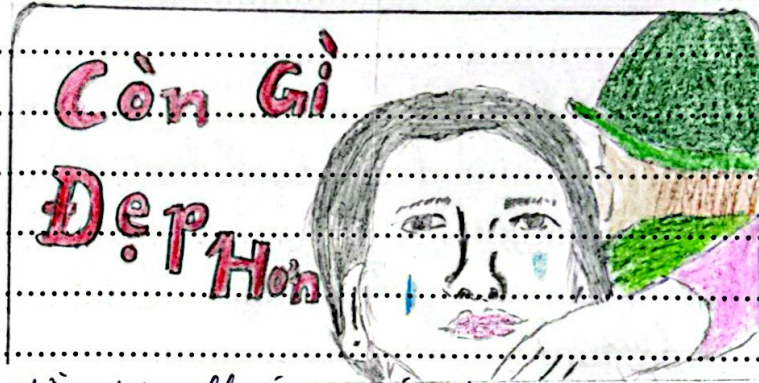 Còn Gì
Đẹp Hơn